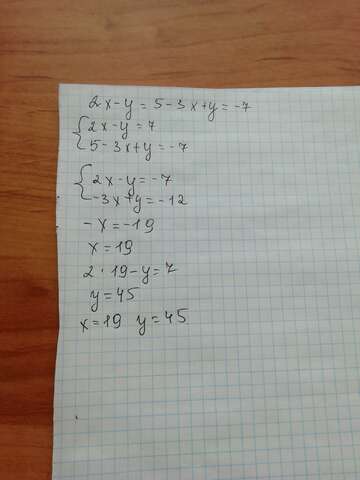 2x-y = 5-3x+y = -7
2x-y=7
5-3x+y=-7
2x-y=-7
-3x+y=-12
-x=-19
x=19
2·19-y=7
y=45
x=19 y=45